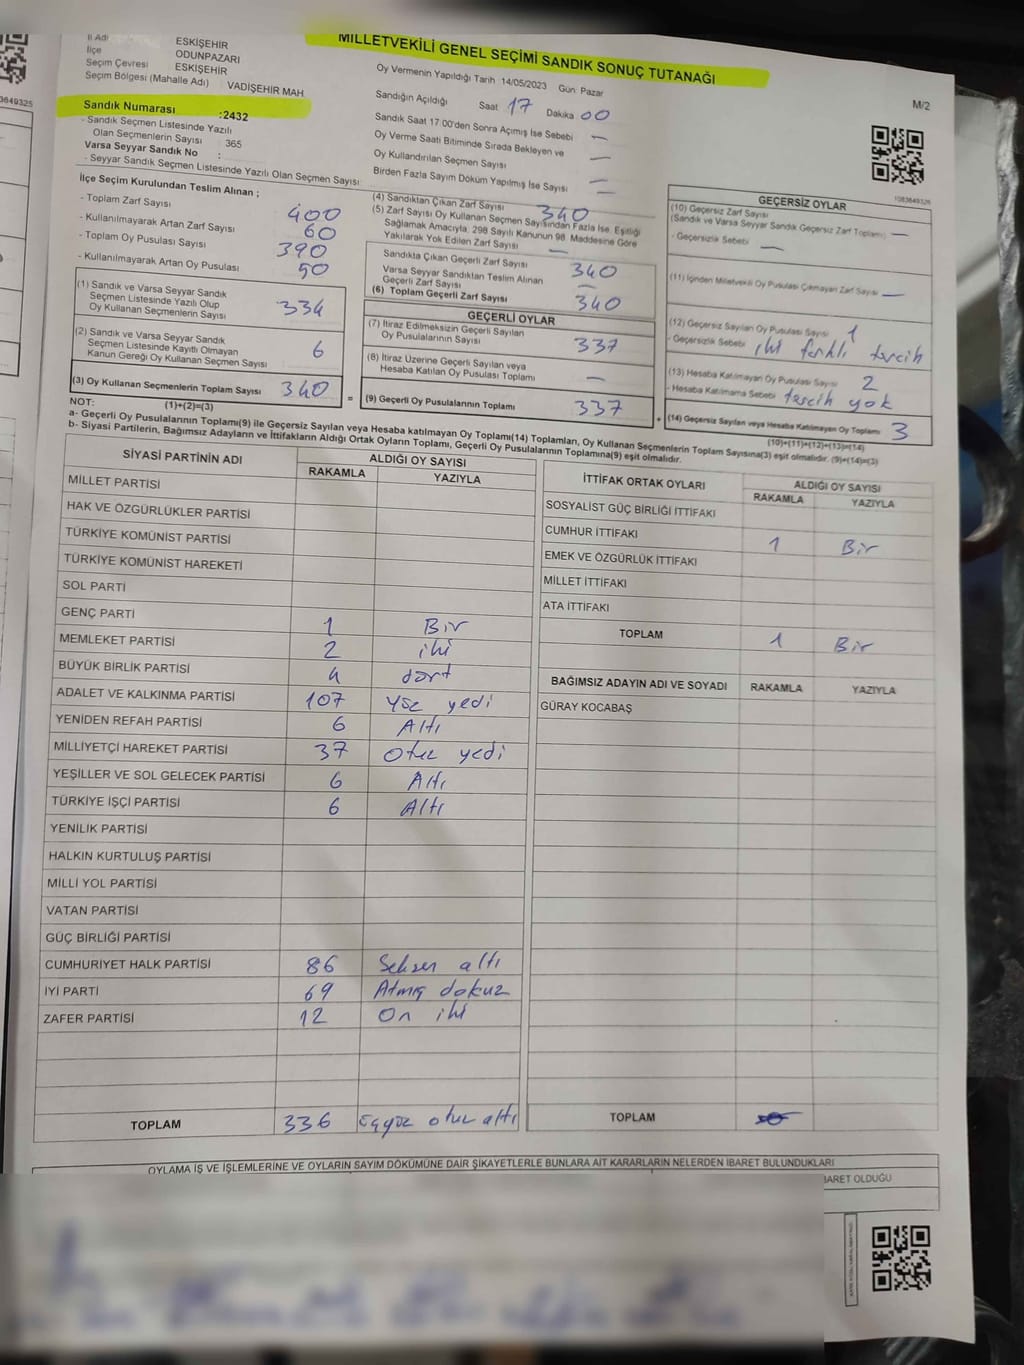 MİLLETVEKİLİ GENEL SEÇİMİ SANDIK SONUÇ TUTANAĞI
M/2
İl Adı ESKİŞEHİR
İlçe ODUNPAZARI
Seçim Çevresi ESKİŞEHİR
Seçim Bölgesi (Mahalle Adı) VADİŞEHİR MAH.
Sandık Numarası :2432
- Sandık Seçmen Listesinde Yazılı
Olan Seçmenlerin Sayısı 365
Varsa Seyyar Sandık No :
- Seyyar Sandık Seçmen Listesinde Yazılı Olan Seçmen Sayısı
Oy Vermenin Yapıldığı Tarih 14/05/2023 Gün: Pazar
Sandığın Açıldığı Saat 17 Dakika 00
Sandık Saat 17:00'den Sonra Açılmış İse Sebebi —
Oy Verme Saati Bitiminde Sırada Bekleyen ve
Oy Kullandırılan Seçmen Sayısı —
Birden Fazla Sayım Döküm Yapılmış İse Sayısı —
İlçe Seçim Kurulundan Teslim Alınan ;
- Toplam Zarf Sayısı 400
- Kullanılmayarak Artan Zarf Sayısı 60
- Toplam Oy Pusulası Sayısı 390
- Kullanılmayarak Artan Oy Pusulası 50
(1) Sandık ve Varsa Seyyar Sandık
Seçmen Listesinde Yazılı Olup
Oy Kullanan Seçmenlerin Sayısı 334
(2) Sandık ve Varsa Seyyar Sandık
Seçmen Listesinde Kayıtlı Olmayan
Kanun Gereği Oy Kullanan Seçmen Sayısı 6
(3) Oy Kullanan Seçmenlerin Toplam Sayısı 340
(1)+(2)=(3)
(4) Sandıktan Çıkan Zarf Sayısı 340
(5) Zarf Sayısı Oy Kullanan Seçmen Sayısından Fazla İse, Eşitliği
Sağlamak Amacıyla, 298 Sayılı Kanunun 98. Maddesine Göre
Yakılarak Yok Edilen Zarf Sayısı —
Sandıkta Çıkan Geçerli Zarf Sayısı 340
Varsa Seyyar Sandıktan Teslim Alınan
Geçerli Zarf Sayısı —
(6) Toplam Geçerli Zarf Sayısı 340
GEÇERLİ OYLAR
(7) İtiraz Edilmeksizin Geçerli Sayılan
Oy Pusulalarının Sayısı 337
(8) İtiraz Üzerine Geçerli Sayılan veya
Hesaba Katılan Oy Pusulası Toplamı —
= (9) Geçerli Oy Pusulalarının Toplamı 337
1083649326
GEÇERSİZ OYLAR
(10) Geçersiz Zarf Sayısı
(Sandık ve Varsa Seyyar Sandık Geçersiz Zarf Toplamı) —
- Geçersizlik Sebebi —
(11) İçinden Milletvekili Oy Pusulası Çıkmayan Zarf Sayısı —
(12) Geçersiz Sayılan Oy Pusulası Sayısı 1
- Geçersizlik Sebebi iki farklı tercih
(13) Hesaba Katılmayan Oy Pusula Sayısı 2
- Hesaba Katılmama Sebebi tercih yok
+ (14) Geçersiz Sayılan veya Hesaba Katılmayan Oy Toplamı 3
(10)+(11)+(12)+(13)=(14)
NOT:
a- Geçerli Oy Pusulalarının Toplamı(9) ile Geçersiz Sayılan veya Hesaba katılmayan Oy Toplamı(14) Toplamları, Oy Kullanan Seçmenlerin Toplam Sayısına(3) eşit olmalıdır. (9)+(14)=(3)
b- Siyasi Partilerin, Bağımsız Adayların ve İttifakların Aldığı Ortak Oyların Toplamı, Geçerli Oy Pusulalarının Toplamına(9) eşit olmalıdır.
SİYASİ PARTİNİN ADI ALDIĞI OY SAYISI
RAKAMLA YAZIYLA
MİLLET PARTİSİ
HAK VE ÖZGÜRLÜKLER PARTİSİ
TÜRKİYE KOMÜNİST PARTİSİ
TÜRKİYE KOMÜNİST HAREKETİ
SOL PARTİ
GENÇ PARTİ 1 Bir
MEMLEKET PARTİSİ 2 iki
BÜYÜK BİRLİK PARTİSİ 4 dört
ADALET VE KALKINMA PARTİSİ 107 Yüz yedi
YENİDEN REFAH PARTİSİ 6 Altı
MİLLİYETÇİ HAREKET PARTİSİ 37 Otuz yedi
YEŞİLLER VE SOL GELECEK PARTİSİ 6 Altı
TÜRKİYE İŞÇİ PARTİSİ 6 Altı
YENİLİK PARTİSİ
HALKIN KURTULUŞ PARTİSİ
MİLLİ YOL PARTİSİ
VATAN PARTİSİ
GÜÇ BİRLİĞİ PARTİSİ
CUMHURİYET HALK PARTİSİ 86 Seksen altı
İYİ PARTİ 69 Atmış dokuz
ZAFER PARTİSİ 12 On iki
TOPLAM 336 üçyüz otuz altı
İTTİFAK ORTAK OYLARI ALDIĞI OY SAYISI
RAKAMLA YAZIYLA
SOSYALİST GÜÇ BİRLİĞİ İTTİFAKI
CUMHUR İTTİFAKI 1 Bir
EMEK VE ÖZGÜRLÜK İTTİFAKI
MİLLET İTTİFAKI
ATA İTTİFAKI
TOPLAM 1 Bir
BAĞIMSIZ ADAYIN ADI VE SOYADI RAKAMLA YAZIYLA
GÜRAY KOCABAŞ
TOPLAM
OYLAMA İŞ VE İŞLEMLERİNE VE OYLARIN SAYIM DÖKÜMÜNE DAİR ŞİKAYETLERLE BUNLARA AİT KARARLARIN NELERDEN İBARET BULUNDUKLARI
İBARET OLDUĞU